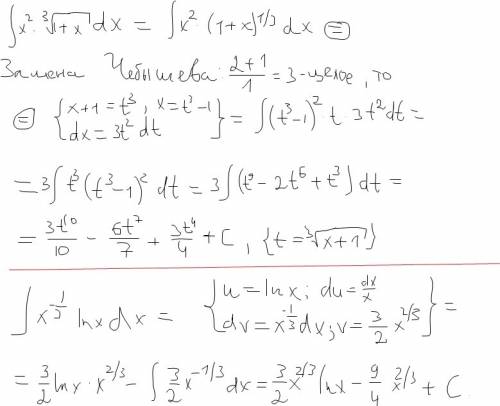 ∫x²·∛(1+x) dx = ∫x² (1+x)^(1/3) dx ⊜
Замена Чебышева: (2+1)/1 = 3 - целое, то
⊜ {x+1 = t³, x = t³-1; dx = 3t² dt} = ∫(t³-1)² t 3t² dt =
= 3∫t³(t³-1)² dt = 3∫(t⁹ - 2t⁶ + t³) dt =
= 3t¹⁰/10 - 6t⁷/7 + 3t⁴/4 + C, {t = ∛(x+1)}
∫x^(-1/3) lnx dx = {u = lnx; du = dx/x; dv = x^(-1/3) dx; v = 3/2 x^(2/3)} =
= 3/2 lnx · x^(2/3) - ∫ 3/2 x^(-1/3) dx = 3/2 x^(2/3) lnx - 9/4 x^(2/3) + C